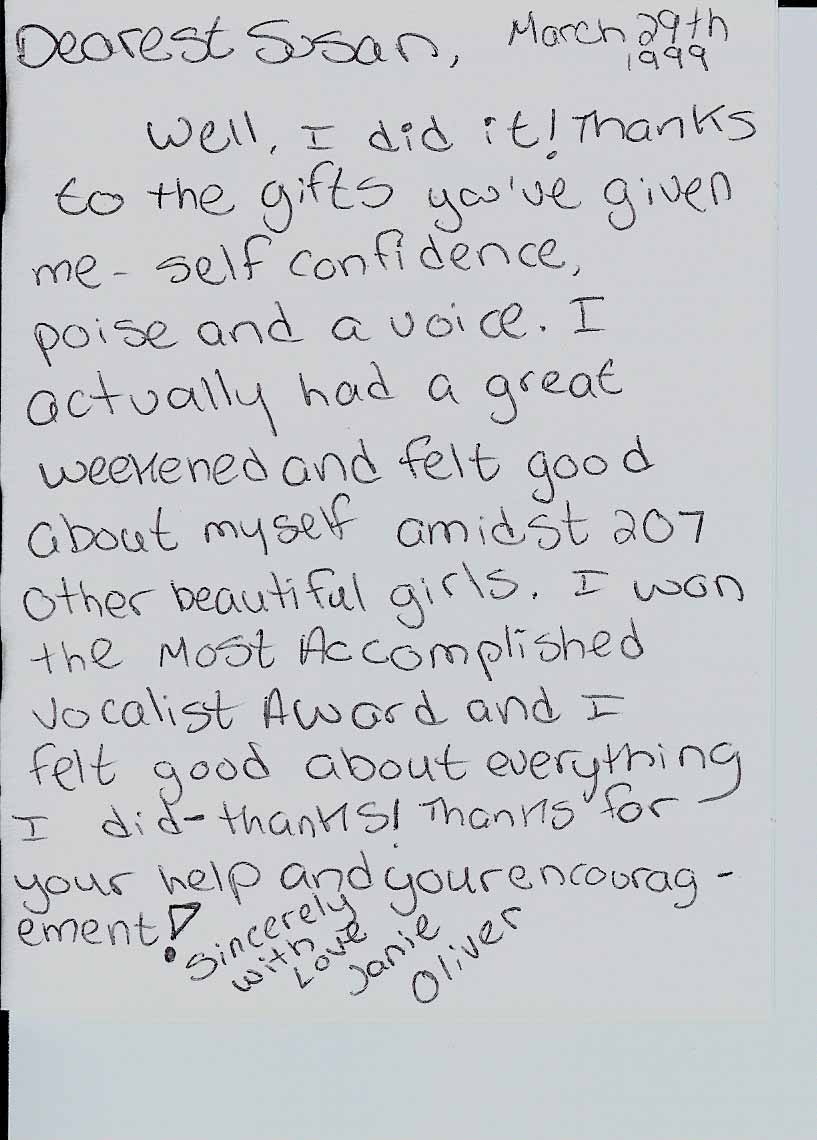 Dearest Susan, March 29th
1999
Well, I did it! Thanks
to the gifts you've given
me - self confidence,
poise and a voice. I
actually had a great
weekened and felt good
about myself amidst 207
other beautiful girls. I won
the Most Accomplished
Vocalist Award and I
felt good about everything
I did - thanks! Thanks for
your help and your encourag -
ement!
Sincerely
with
Love
Janie
Oliver